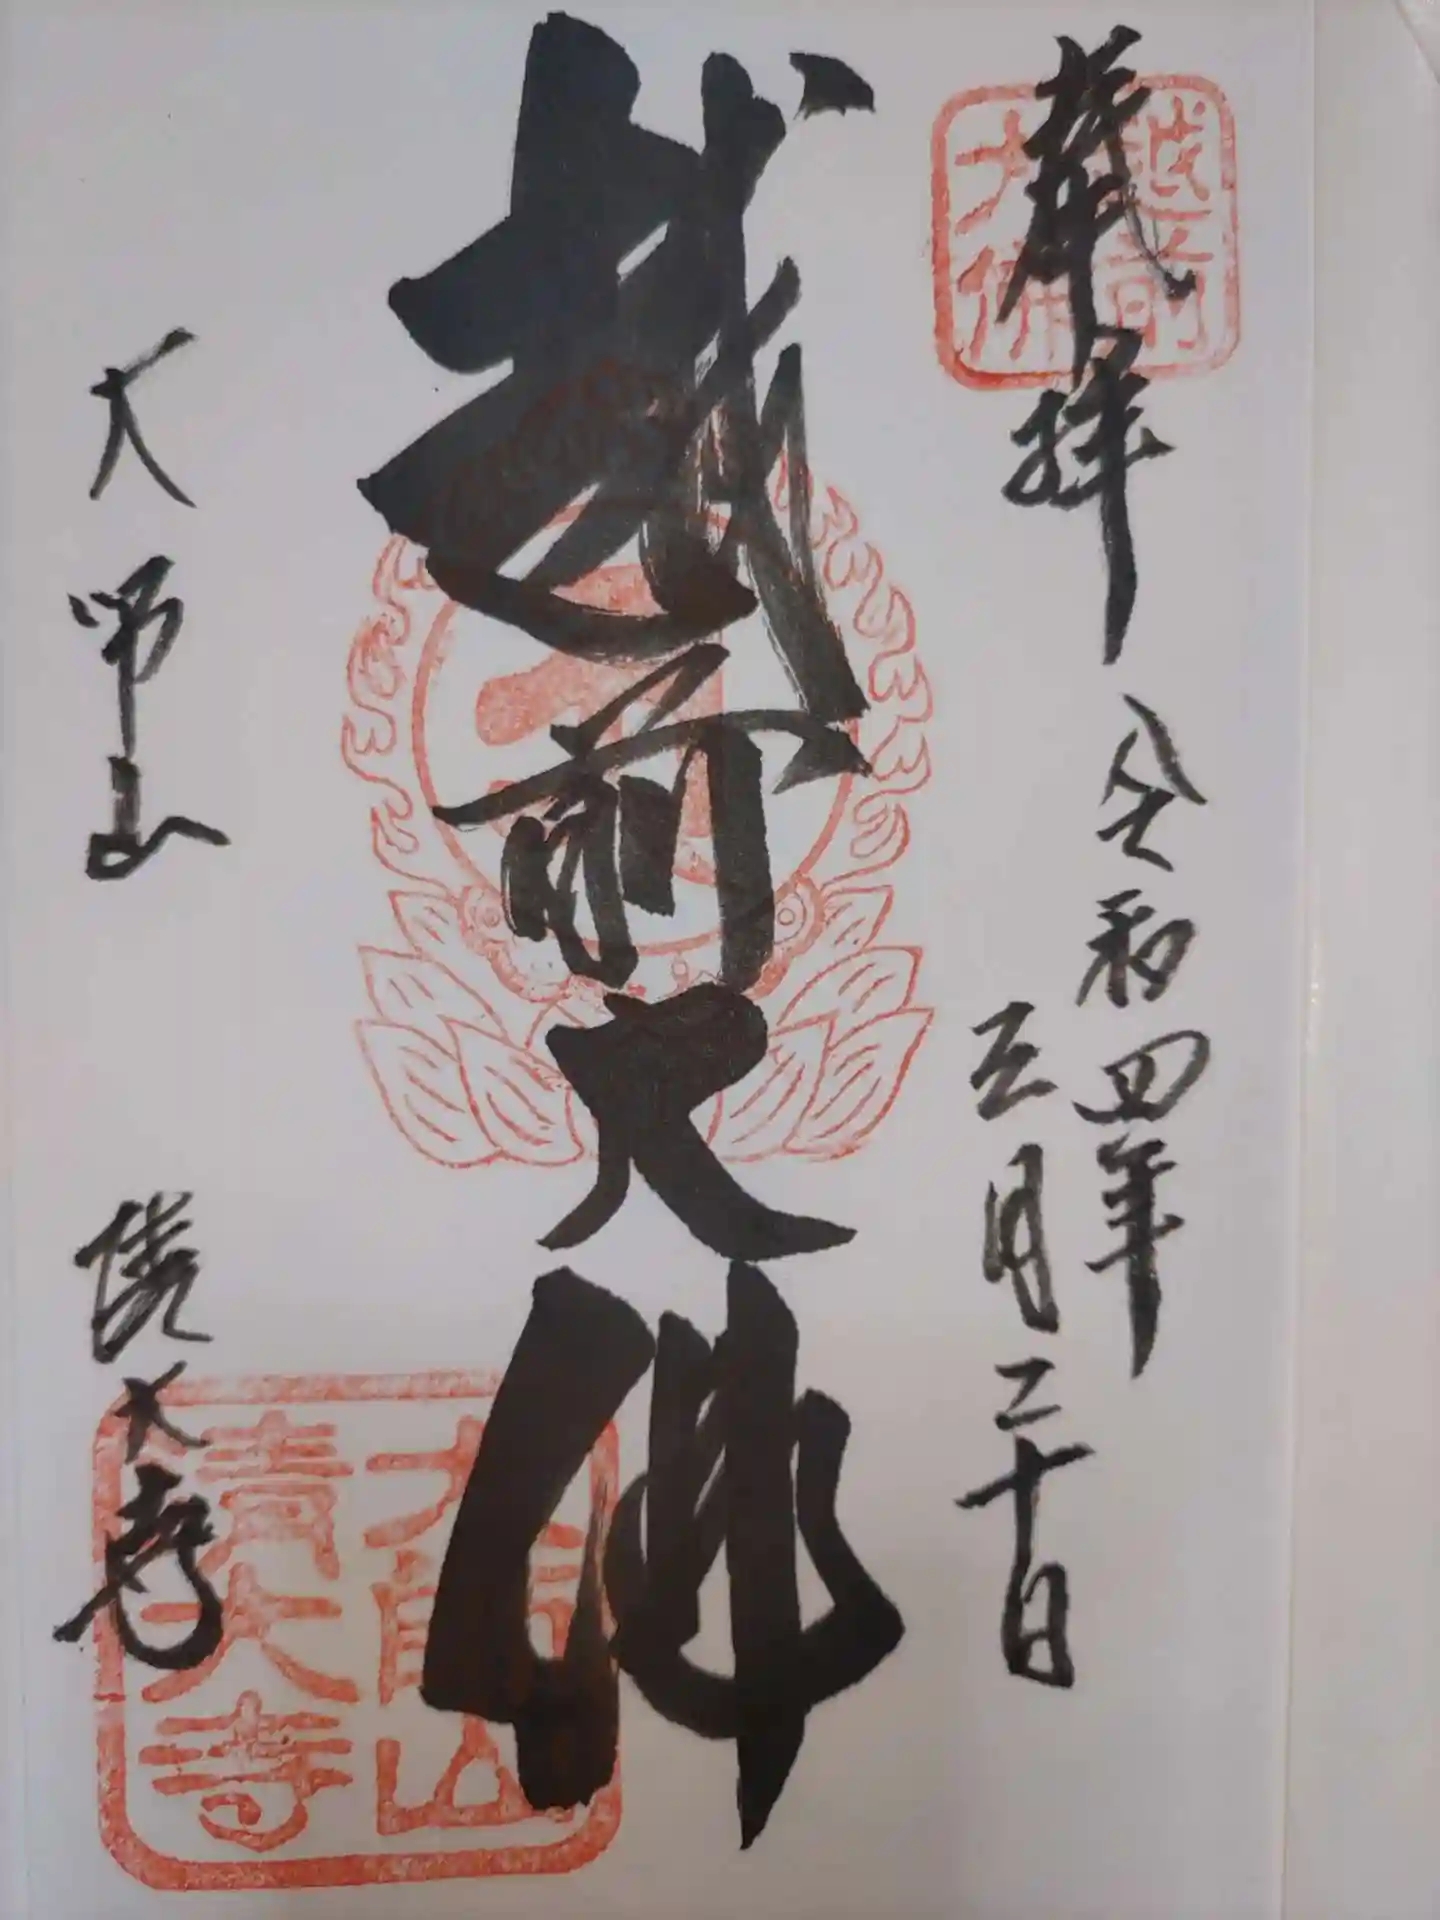 奉拝
越前
大佛
令和四年
五月二十日
越前大佛
大師山
清大寺
大師山
清大寺